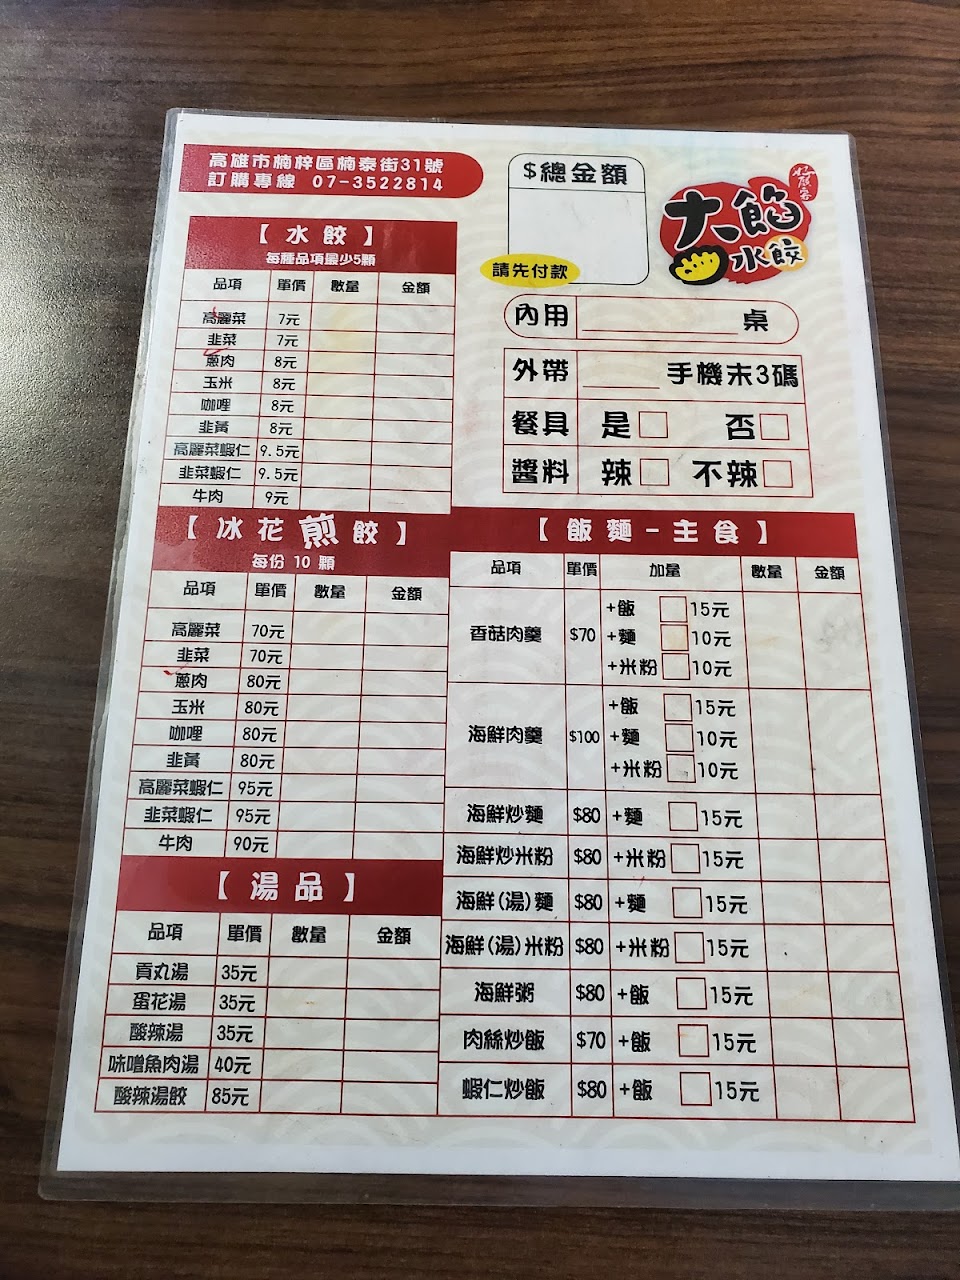 高雄市楠梓區楠泰街31號
訂購專線 07-3522814
$總金額
請先付款
好顧客
大餡
水餃
內用 桌
外帶 手機末3碼
餐具 是 否
醬料 辣 不辣
【水餃】
每種品項最少5顆
品項 單價 數量 金額
高麗菜 7元
韭菜 7元
蔥肉 8元
玉米 8元
咖哩 8元
韭黃 8元
高麗菜蝦仁 9.5元
韭菜蝦仁 9.5元
牛肉 9元
【冰花煎餃】
每份 10 顆
品項 單價 數量 金額
高麗菜 70元
韭菜 70元
蔥肉 80元
玉米 80元
咖哩 80元
韭黃 80元
高麗菜蝦仁 95元
韭菜蝦仁 95元
牛肉 90元
【湯品】
品項 單價 數量 金額
貢丸湯 35元
蛋花湯 35元
酸辣湯 35元
味噌魚肉湯 40元
酸辣湯餃 85元
【飯麵-主食】
品項 單價 加量 數量 金額
香菇肉羹 $70 +飯 15元
+麵 10元
+米粉 10元
海鮮肉羹 $100 +飯 15元
+麵 10元
+米粉 10元
海鮮炒麵 $80 +麵 15元
海鮮炒米粉 $80 +米粉 15元
海鮮(湯)麵 $80 +麵 15元
海鮮(湯)米粉 $80 +米粉 15元
海鮮粥 $80 +飯 15元
肉絲炒飯 $70 +飯 15元
蝦仁炒飯 $80 +飯 15元